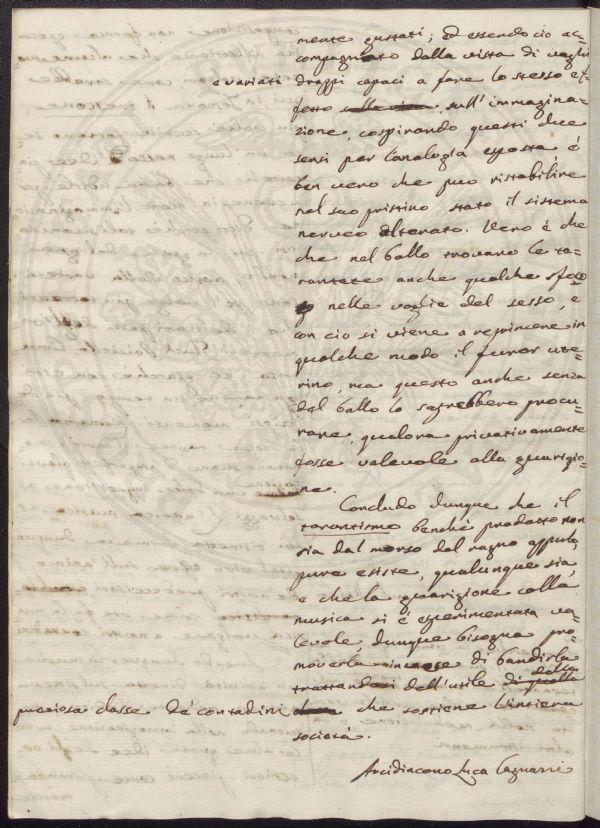 mente gustati; ed essendo ciò ac=
compagnato dalla vista di vaghi
e variati drappi capaci a fare lo stesso ef=
fetto sull'immagina=
zione, cospirando questi due
sensi per l'analogia esposta è
ben vero che può ristabilire
nel suo pristino stato il sistema
nerveo alterato. Vero è che
che nel ballo trovano le ta=
rantate anche qualche sfogo
nelle voglie del sesso, e
con ciò si viene a reprimere in
qualche modo il furor ute=
rino, ma questo anche senza
dal ballo lo saprebbero procu=
rare, qualora privativamente
fosse valevole alla guarigio=
ne.
Concludo dunque che il
tarantismo benché prodotto non
sia dal morso del ragno appulo,
pure esiste, qualunque sia,
e che la guarigione colla
musica si è esperimentata va=
levole, dunque bisogna pro=
moverla invece di bandirla
trattandosi dell'utile della
preziosa classe de' contadini che sostiene l'intiera
società.
Arcidiacono Luca Cagnazzi